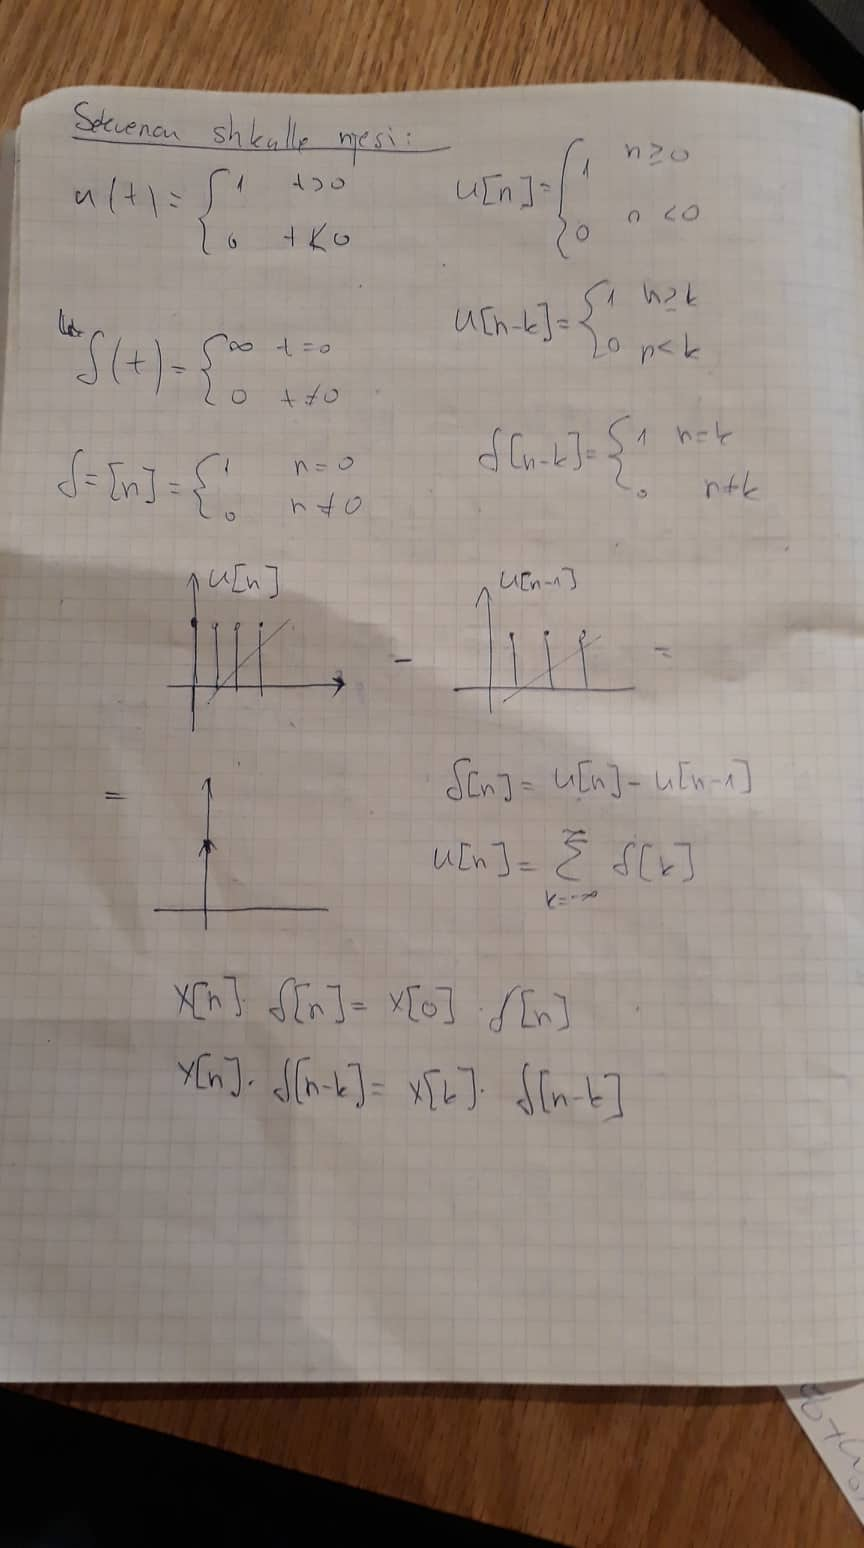 Sekuenca shkalle njesi:
u(t) = { 1 t>0
0 t<0
u[n] = { 1 n≥0
0 n<0
u[n-k] = { 1 n≥k
0 n<k
δ(t) = { ∞ t=0
0 t≠0
δ[n-k] = { 1 n=k
0 n≠k
δ=[n] = { 1 n=0
0 n≠0
u[n]
u[n-1]
- =
=
δ[n] = u[n] - u[n-1]
u[n] = ∑ δ[k]
k=-∞
x[n] · δ[n] = x[0] · δ[n]
x[n] · δ[n-k] = x[k] · δ[n-k]